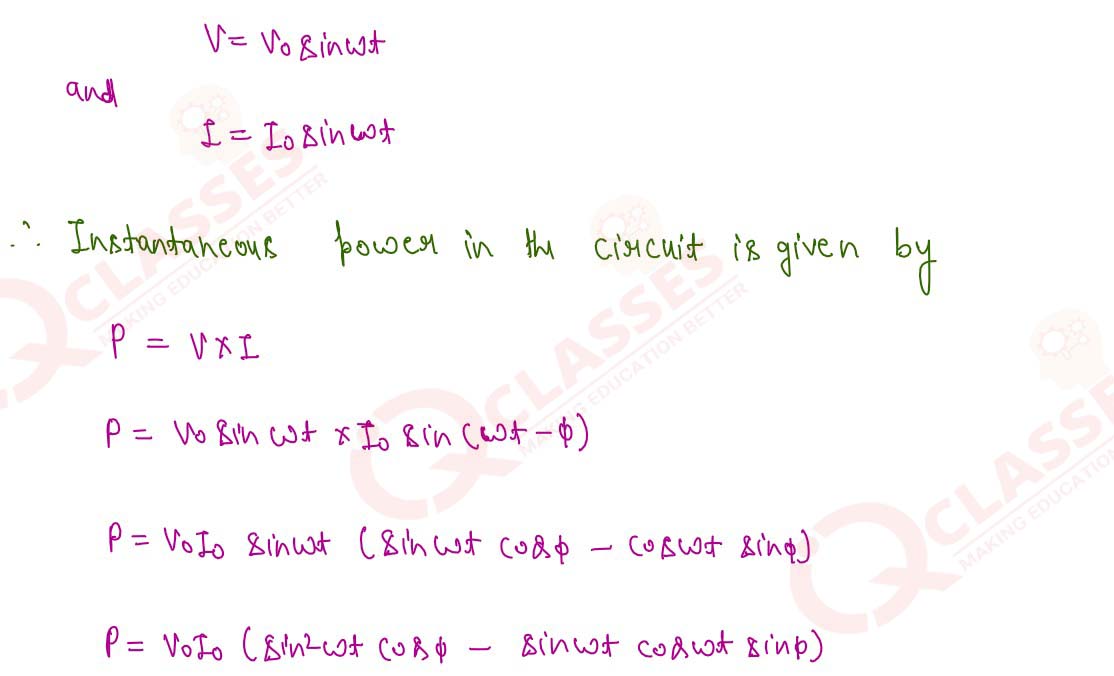 V = V₀ sin ωt
and
I = I₀ sin ωt
∴ Instantaneous power in the circuit is given by
P = V × I
P = V₀ sin ωt × I₀ sin (ωt − φ)
P = V₀I₀ sin ωt (sin ωt cos φ − cos ωt sin φ)
P = V₀I₀ (sin² ωt cos φ − sin ωt cos ωt sin φ)
CLASSES
MAKING EDUCATION BETTER
CLASSES
MAKING EDUCATION BETTER
CLASSES
MAKING EDUCATION